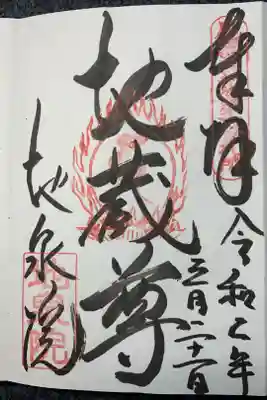 奉拝
令和二年
三月二十一日
地蔵尊
地泉院